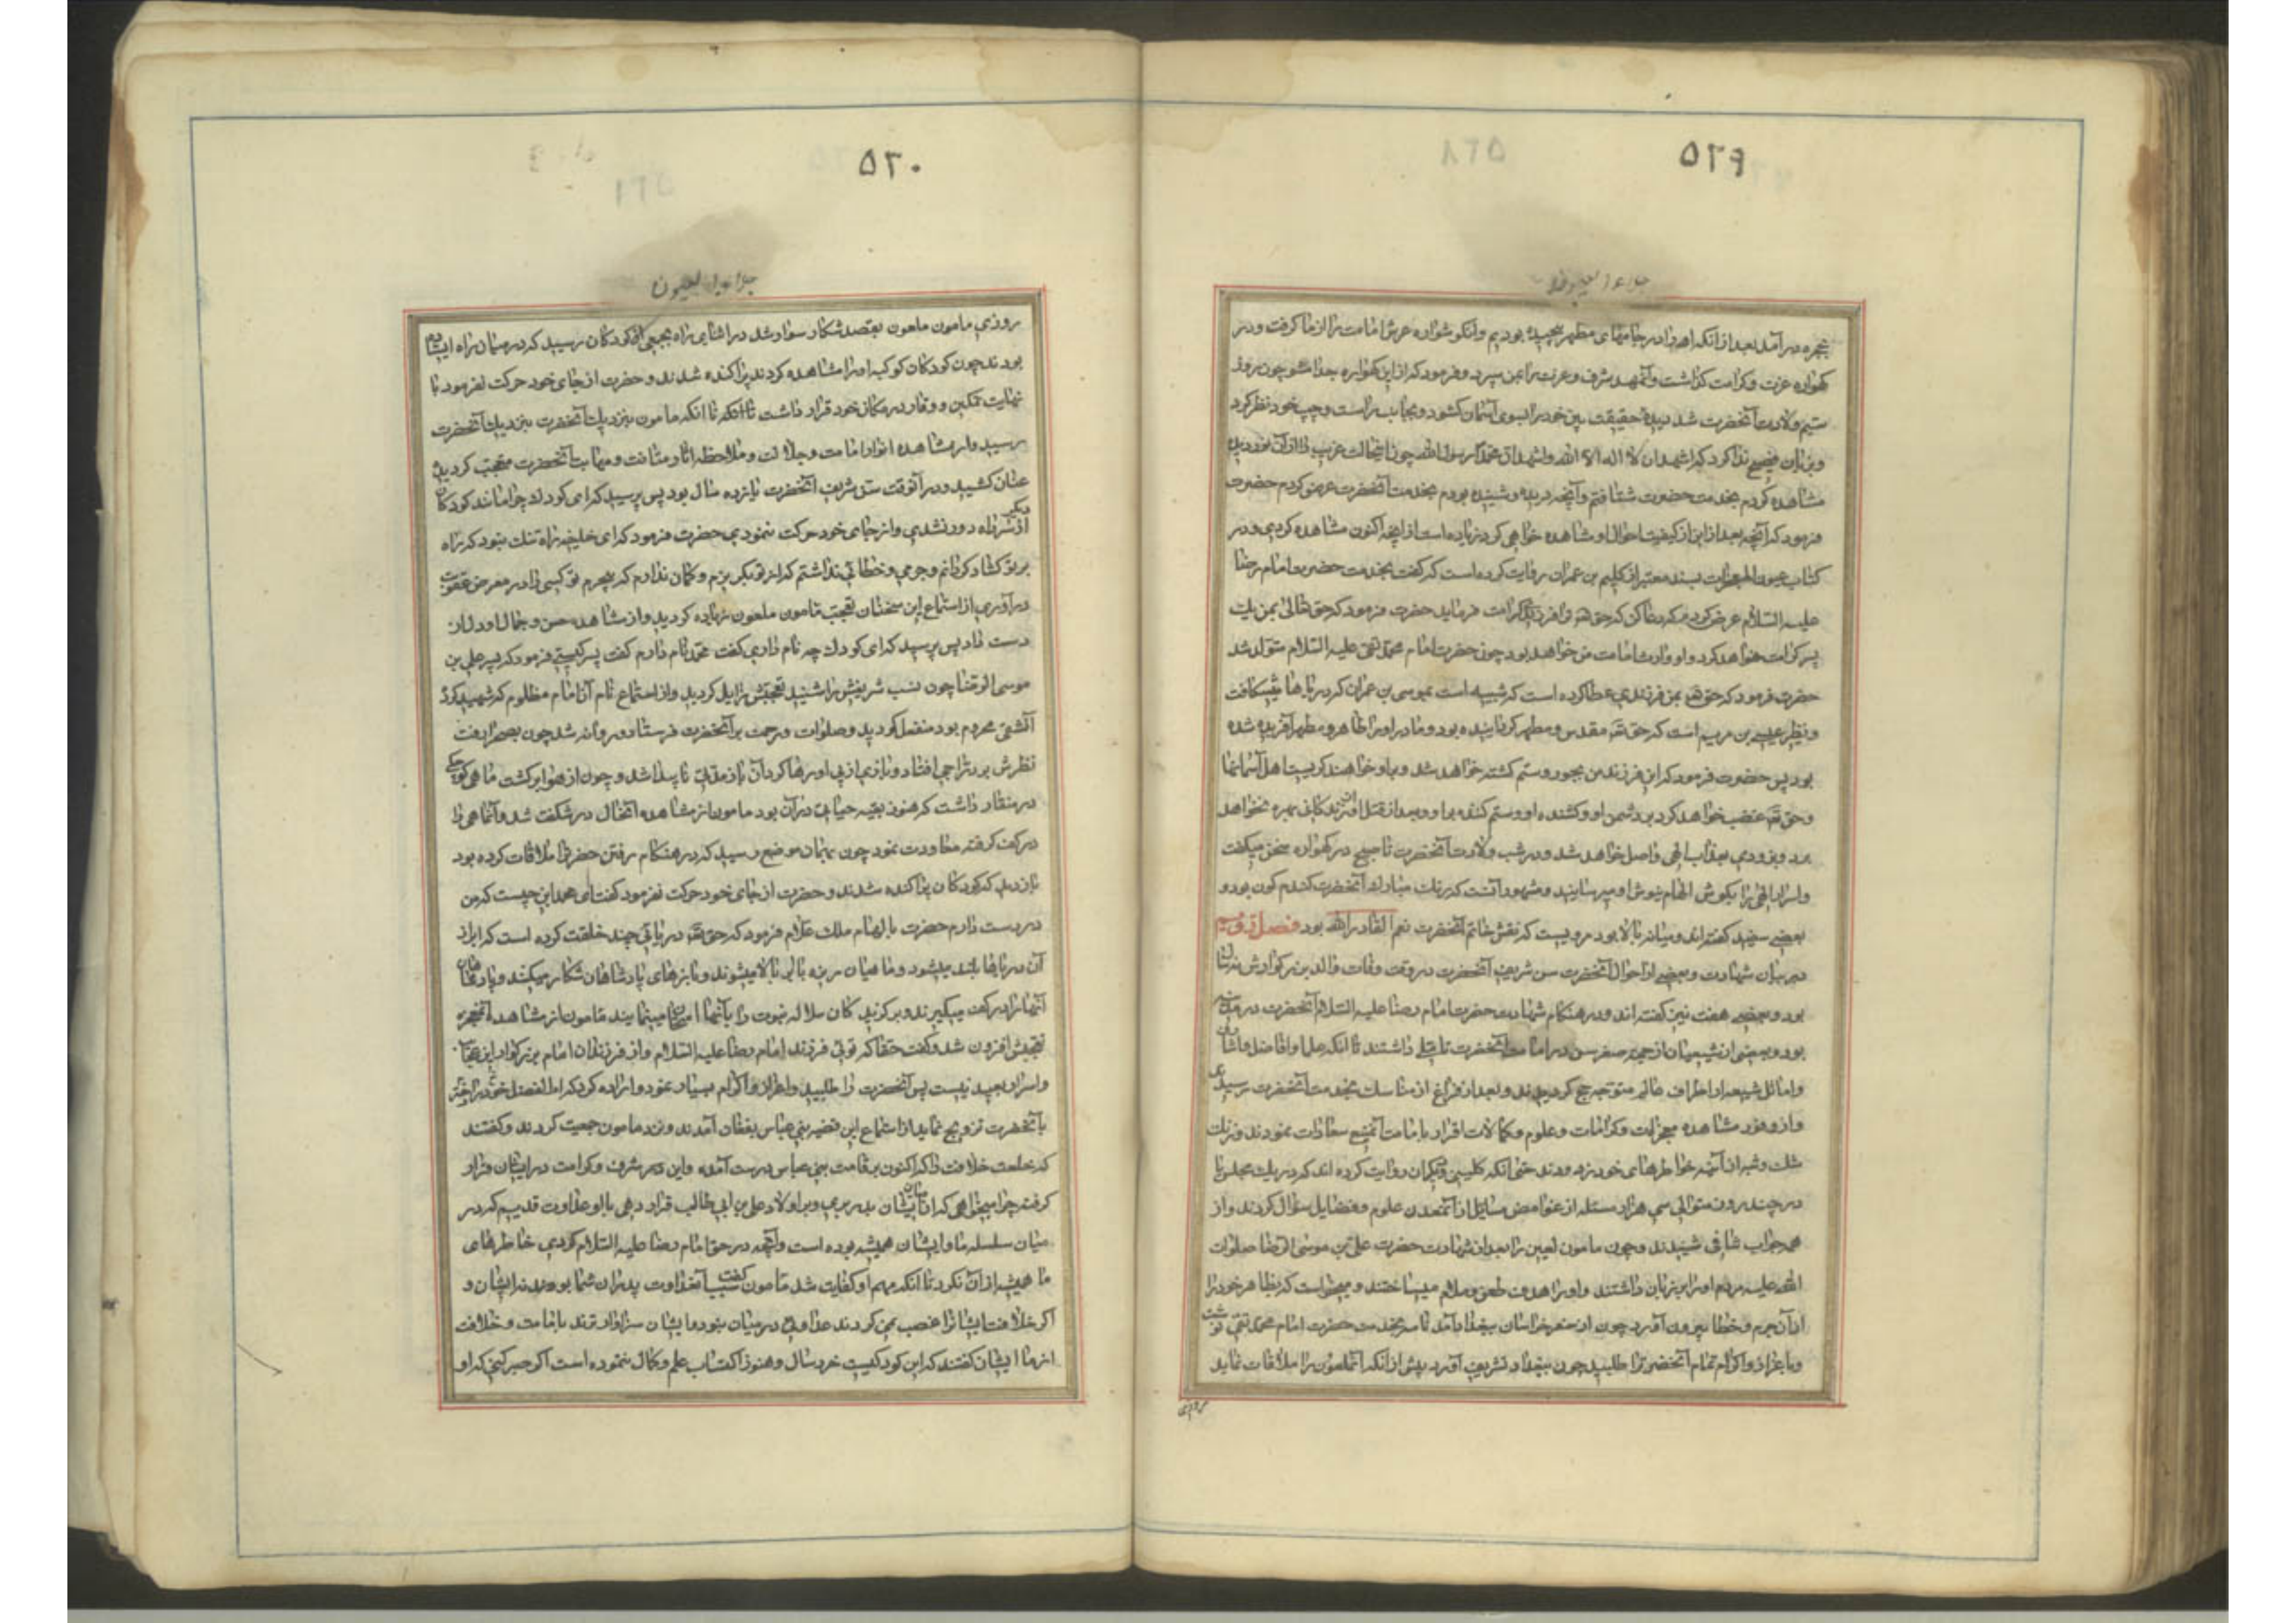 ۵۲۹
جلاء العیون
حجره در آمد بعد از انکه او را در جامهای مطهر پیچیده بودیم وانکوشواره عرش امامت را از ما کرفت و در
کهواره عزت و کرامت کذاشت وآنمهد شرف و عزت را بمن سپرد و فرمود که از این کهواره جدا مشو چون روز
سیم ولادت آنحضرت شد دیدهٔ حقیقت بین خود را بسوی آسمان کشود و بجانب راست و چپ خود نظر کرد
وبزبان فصیح ندا کرد که اشهد ان لا اله الا الله واشهد ان محمدا رسول الله چون اینحالت غریب را از آن نور دیده
مشاهده کردم بخدمت حضرت شتافتم وآنچه دیده و شنیده بودم بخدمت آنحضرت عرض کردم حضرت
فرمود که آنچه بعد از این از کیفیت احوال او مشاهده خواهی کرد زیاده است از آنچه اکنون مشاهده کردی و در
کتاب عیون المعجزات بسند معتبر از کلیم بن عمران روایت کرده است که کفت بخدمت حضرت امام رضا
علیه السلام عرض کردم که دعا کن که حق تعه ترا فرزندی کرامت فرماید حضرت فرمود که حق تعالی بمن یک
پسر کرامت خواهد کرد و او وارث امامت من خواهد بود چون حضرت امام محمد تقی علیه السلام متولد شد
حضرت فرمود که حق تعه بمن فرزندی عطا کرده است که شبیه است بموسی بن عمران که دریاها میشکافت
و نظیر عیسی بن مریم است که حق تعه مقدس و مطهر کردانیده بود و مادر او را طاهر و مطهر آفریده شده
بود پس حضرت فرمود که این فرزند من بجور و ستم کشته خواهد شد و بر او خواهند کریست اهل آسمانها
وحق تعه غضب خواهد کرد بر دشمن او و کشنده او و ستم کننده بر او و بعد از قتل او از زندکانی بهره نخواهد
برد و بزودی بعذاب الهی واصل خواهد شد و در شب ولادت آنحضرت تا صبح در کهواره سخن میکفت
واسرار الهی را بکوش الهام نیوش او میرسانید و مشهور آنست که رنک مبارک آنحضرت کندم کون بود و
بعضی سفید کفته اند و میانه بالا بود مرویست که نقش خاتم آنحضرت نعم القادر الله بود فصل دوم
در بیان شهادت و بعضی از احوال آنحضرت سن شریف آنحضرت در وقت وفات والد بزرکوارش نه سال
بود و بعضی هفت نیز کفته اند و در هنکام شهادت حضرت امام رضا علیه السلام آنحضرت در مدینه
بود و بعضی از شیعیان از جهة صغر سن در امامت آنحضرت تاملی داشتند تا انکه علما وافاضل واشراف
واماثل شیعه از اطراف عالم متوجه حج کردیدند و بعد از فراغ از مناسک بخدمت آنحضرت رسیدند
واز وفور مشاهده معجزات و کرامات و علوم و کمالات اقرار بامامت آنمنبع سعادات نمودند و زنک
شک و شبه از آئینه خواطرهای خود زدودند حتی انکه کلینی ودیکران روایت کرده اند که در یک مجلس یا
در چند روز متوالی سی هزار مسئله از غوامض مسایل از آنمعدن علوم و فضایل سؤال کردند و از
همه جواب شافی شنیدند و چون مامون لعین را بعد از شهادت حضرت علی بن موسی الرضا صلوات
الله علیه مردم او را بر زبان داشتند واو را هدف طعن و ملام میساختند و میخواست که بظاهر خود را
از آن جرم و خطا بیرون آورد چون از سفر خراسان ببغداد آمد نامه بخدمت حضرت امام محمد تقی نوشت
وباعزاز واکرام تمام آنحضرت را طلبید چون ببغداد تشریف آورد پیش از انکه آنملعون را ملاقات نماید
روزی
۵۳۰
جلاء العیون
روزی مامون ملعون بقصد شکار سوار شد در اثنای راه بجمعی از کودکان رسید که در میان راه ایستاده
بودند چون کودکان کوکبه او را مشاهده کردند پراکنده شدند و حضرت از جای خود حرکت نفرمود با
نهایت تمکین و وقار در مکان خود قرار داشت تا انکه تا انکه مامون بنزدیک آنحضرت بنزدیک آنحضرت
رسید واز مشاهده انوار امامت و جلالت و ملاحظه اثار متانت و مهابت آنحضرت متعجب کردیده
عنان کشید و در آنوقت سن شریف آنحضرت یازده سال بود پس پرسید که ای کودک چرا مانند کودکان
دیکر از سر راه دور نشدی واز جای خود حرکت ننمودی حضرت فرمود که ای خلیفه راه تنک نبود که راه
بر تو کشاد کردانم و جرمی و خطائی نداشتم که از تو بکریزم و کمان ندارم که بیجرم تو کسی را در معرض عقوبت
درآوری از استماع این سخنان تعجب مامون ملعون زیاده کردید واز مشاهده حسن و جمال او دل از
دست داد پس پرسید که ای کودک چه نام داری کفت محمد نام دارم کفت پسر کیستی فرمود که پسر علی بن
موسی الرضا چون نسب شریفش را شنید تعجبش زایل کردید واز استماع نام آن امام مظلوم که شهید کرد
آنشقی محروم بود منفعل کردید وصلوات ورحمت بر آنحضرت فرستاد و روانه شد چون بصحرا رفت
نظرش بر دراجی افتاد و بازی از پی او رها کرد آن باز مدتی نا پیدا شد و چون از هوا برکشت ماهی کوچکی
در منقار داشت که هنوز بقیه حیاتی در آن بود مامون از مشاهده آنحال در شکفت شد وآنماهی را
در کف کرفته معاودت نمود چون بهمان موضع رسید که در هنکام رفتن حضرت را ملاقات کرده بود
باز دید که کودکان پراکنده شدند و حضرت از جای خود حرکت نفرمود کفت ای محمد این چیست که من
در دست دارم حضرت بالهام ملک علام فرمود که حق تعه دریائی چند خلقت کرده است که ابر از
آن دریاها بلند میشود و ماهیان ریزه با ابر بالا میشوند و بازهای پادشاهان شکار میکنند و پادشاهان
آنها را در کف میکیرند و برکزیدکان سلاله نبوت را بآنها امتحان مینمایند مامون از مشاهده آنمعجزه
تعجبش افزون شد و کفت حقا که توئی فرزند امام رضا علیه السلام واز فرزندان امام بزرکوار این عجایب
واسرار بعید نیست پس آنحضرت را طلبید و اعزاز و اکرام بسیار نمود و اراده کرد که ام الفضل دختر خود را
بآنحضرت تزویج نماید از استماع این قضیه بنی عباس بفغان آمدند و نزد مامون جمعیت کردند و کفتند
که خلعت خلافت را که اکنون بر قامت بنی عباس درست آمده واین در شرف و کرامت در ایشان قرار
کرفته چرا میخواهی که از میان ایشان بدر بری و بر اولاد علی بن ابی طالب قرار دهی با ان عداوت قدیم که در
میان سلسله ما و ایشان همیشه بوده است وآنچه در حق امام رضا علیه السلام کردی خاطرهای
ما همیشه از آن نکران بود تا انکه مهم او کفایت شد مامون کفت سبب آنعداوت پدران شما بودند نه ایشان و
اکر خلافت ایشان را غصب نمی کردند عداوتی در میان نبود و ایشان سزاوارترند بامامت و خلافت
از ما ایشان کفتند که این کودکیست خردسال و هنوز اکتساب علم و کمال ننموده است اکر صبر کنی که او